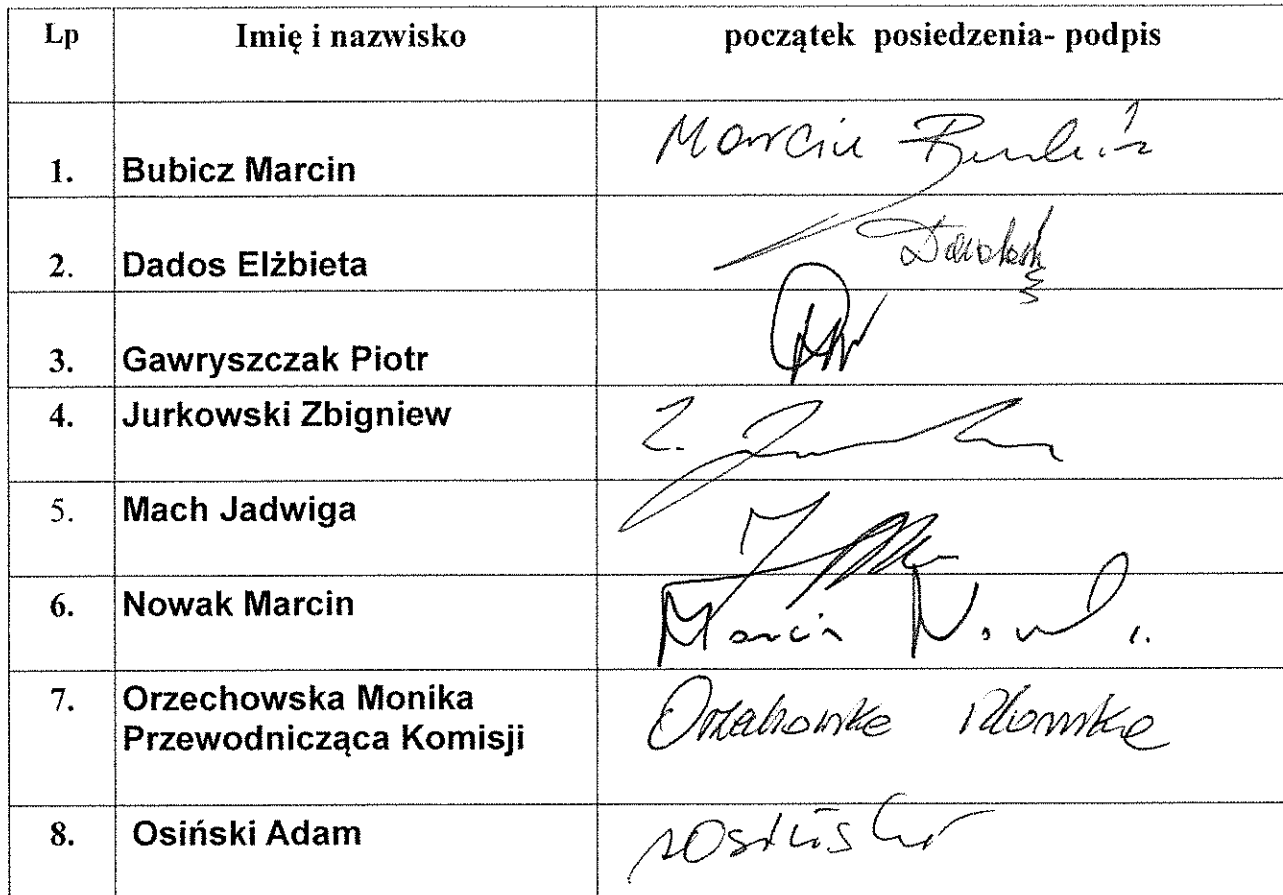 Lp Imię i nazwisko początek posiedzenia- podpis
1. Bubicz Marcin Marcin Bubicz
2. Dados Elżbieta
3. Gawryszczak Piotr
4. Jurkowski Zbigniew Z.
5. Mach Jadwiga
6. Nowak Marcin Marcin Nowak
7. Orzechowska Monika Orzechowska Monika
Przewodnicząca Komisji
8. Osiński Adam AOsiński